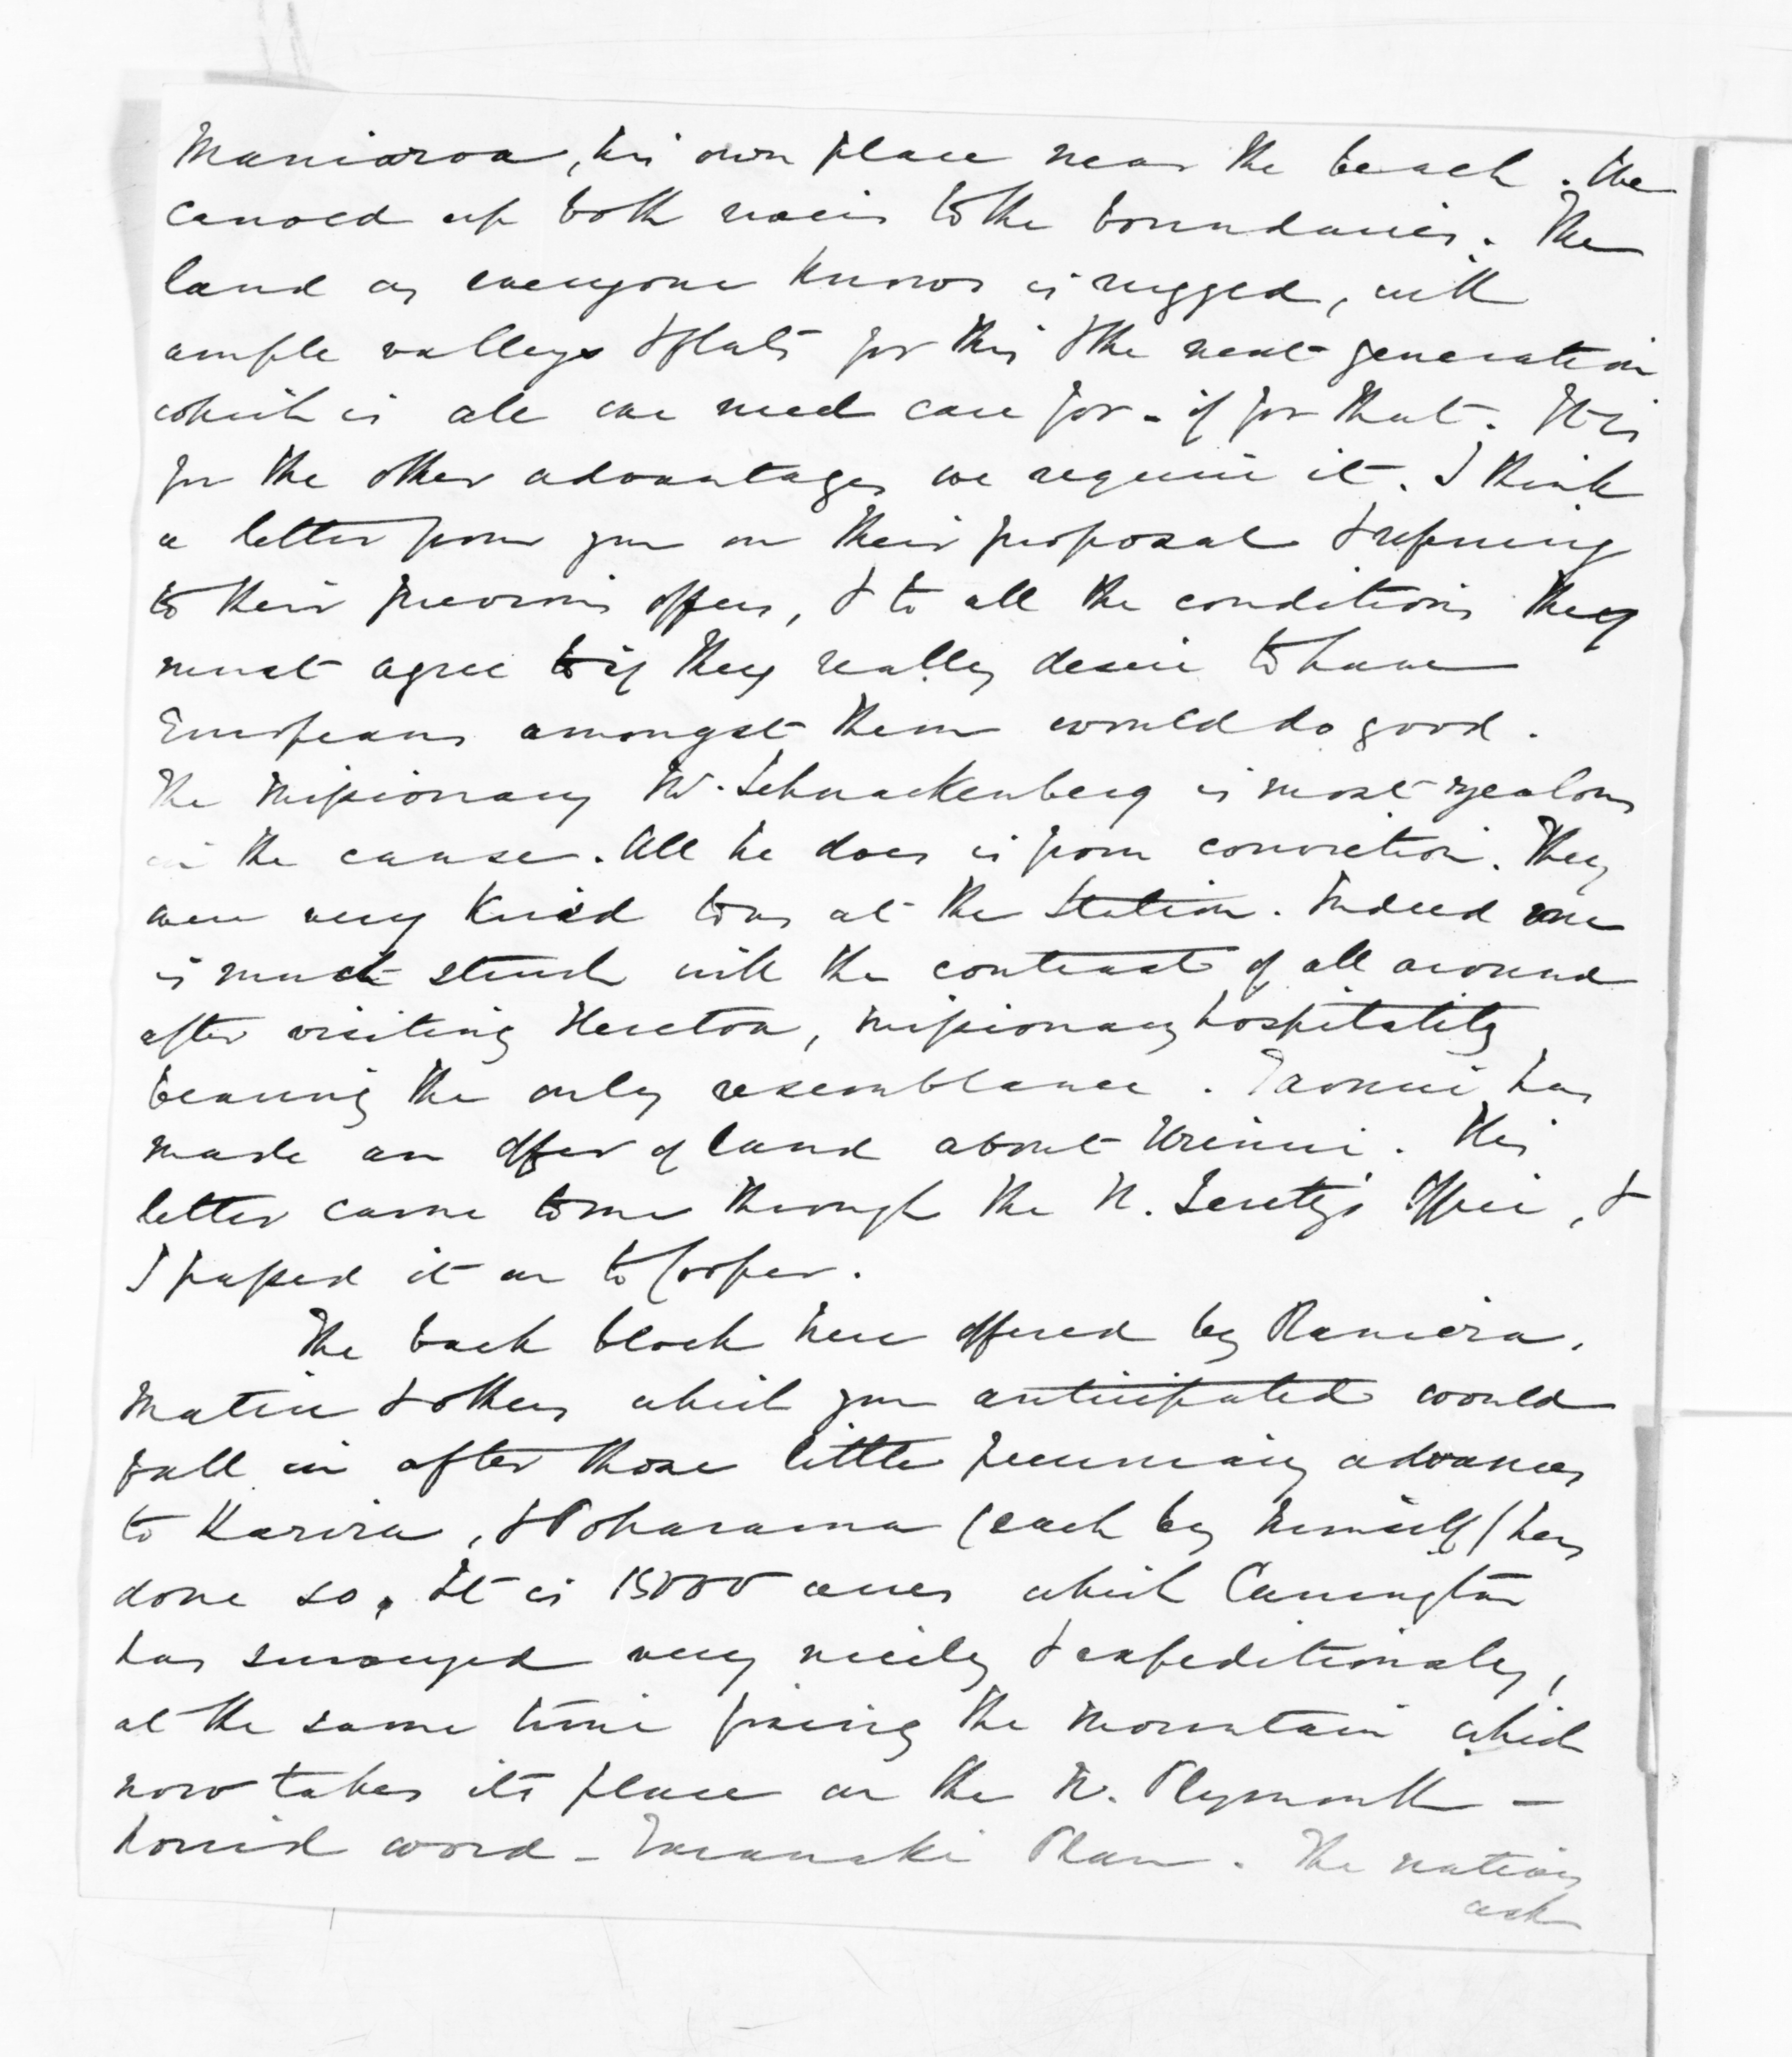 Maniaroa, his own place near the beach. We
canoed up both rivers to the boundaries. The
land as everyone knows is rugged, with
ample valleys & flats for this & the next generation
which is all we need care for - if for that. It is
for the other advantages we require it. I think
a letter from you on their proposal & referring
to their previous offers, & to all the conditions they
must agree to if they really desire to have
Europeans amongst them would do good.
The Missionary Mr. Schnackenberg is most zealous
in the cause. All he does is from conviction. They
were very kind to us at the Station. Indeed one
is much struck with the contrast of all around
after visiting Heretoa, missionary hospitality
bearing the only resemblance. Taonui has
made an offer of land about Urinui. His
letter came to me through the N. Secretty's Office, &
I passed it on to Cooper.
The back block here offered by Raniera,
Matiu & others which you anticipated would
fall in after those little pecuniary advances
to Karira, & Poharama (each by himself) has
done so. It is 15000 acres which Carrington
has surveyed very nicely & expeditionaly,
at the same time fixing the mountain which
now takes its place on the N. Plymouth -
horrid word - Taranaki Plan. The natives
ask